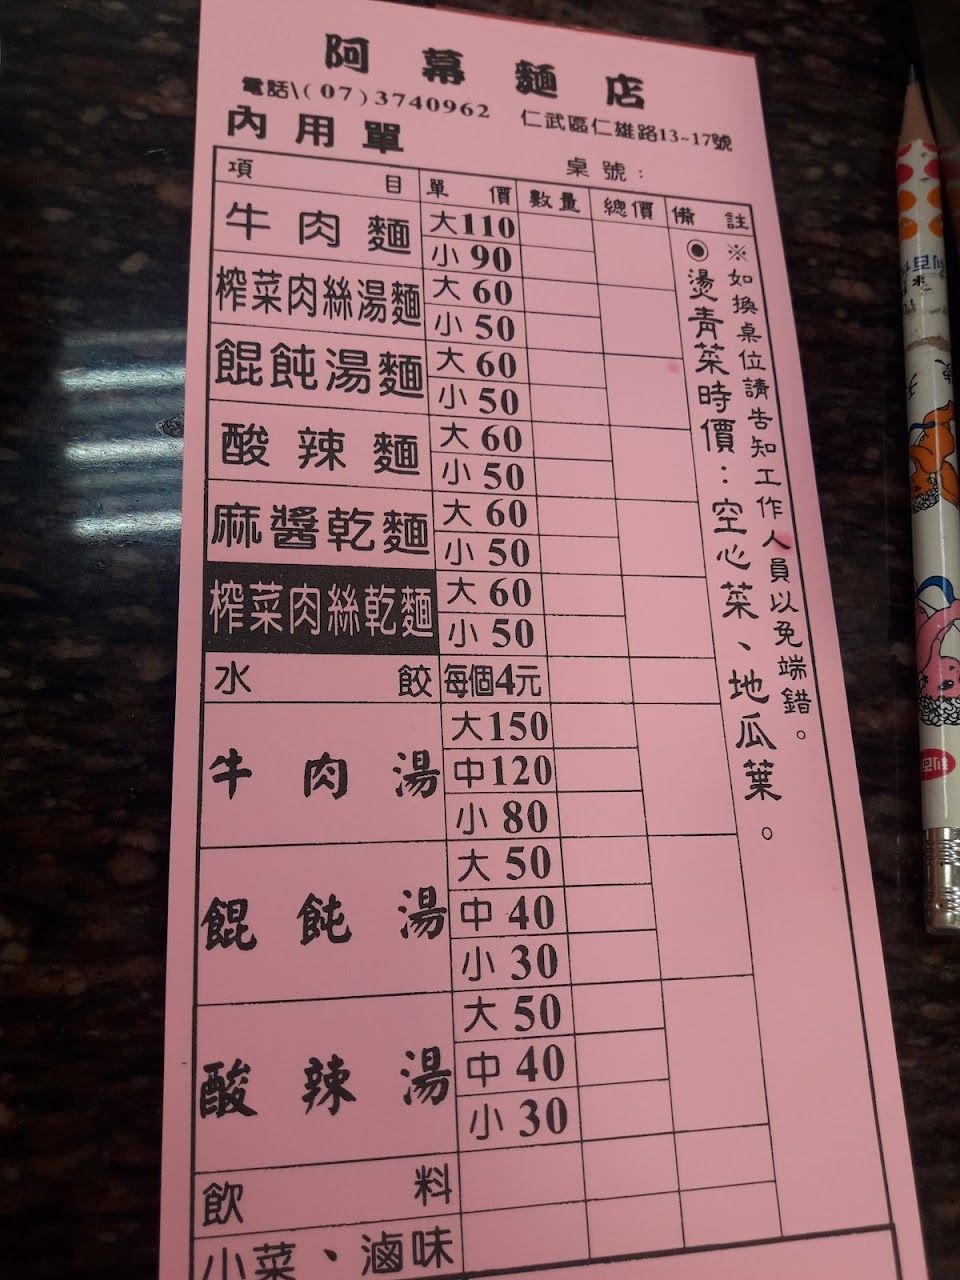 阿幕麵店
電話\(07)3740962 仁武區仁雄路13~17號
內用單
桌號：
項目 單價 數量 總價 備註
牛肉麵 大110
小90
榨菜肉絲湯麵 大60
小50
餛飩湯麵 大60
小50
酸辣麵 大60
小50
麻醬乾麵 大60
小50
榨菜肉絲乾麵 大60
小50
水餃 每個4元
牛肉湯 大150
中120
小80
餛飩湯 大50
中40
小30
酸辣湯 大50
中40
小30
飲料
小菜、滷味
※如換桌位請告知工作人員以免端錯。
◉燙青菜時價：空心菜、地瓜葉。